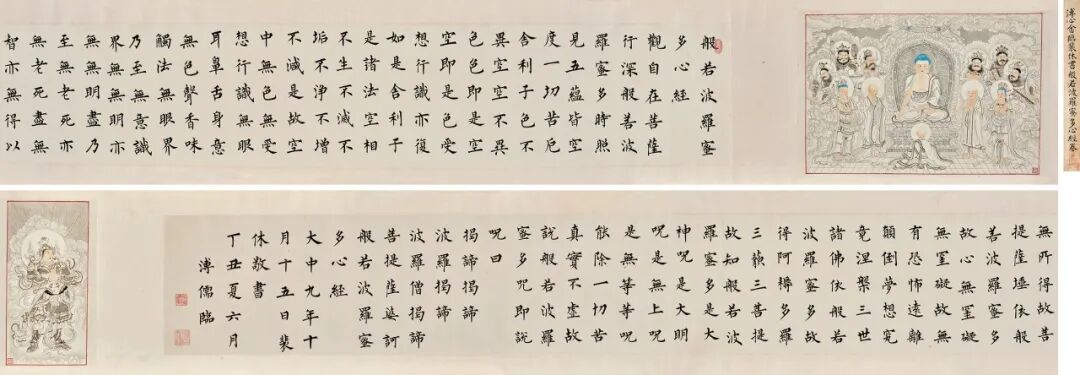 溥心畬臨裴休書般若波羅蜜多心經卷
般若波羅蜜
多心經
觀自在菩薩
行深般若波
羅蜜多時照
見五蘊皆空
度一切苦厄
舍利子色不
異空空不異
色色即是空
空即是色受
想行識亦復
如是舍利子
是諸法空相
不生不滅不
垢不淨不增
不減是故空
中無色無受
想行識無眼
耳鼻舌身意
無色聲香味
觸法無眼界
乃至無意識
界無無明亦
無無明盡乃
至無老死亦
無老死盡無
智亦無得以
無所得故菩
提薩埵依般
若波羅蜜多
故心無罣礙
無罣礙故無
有恐怖遠離
顛倒夢想究
竟涅槃三世
諸佛依般若
波羅蜜多故
得阿耨多羅
三藐三菩提
故知般若波
羅蜜多是大
神呪是大明
呪是無上呪
是無等等呪
能除一切苦
真實不虛故
說般若波羅
蜜多呪即說
呪曰
揭諦揭諦
波羅揭諦
波羅僧揭諦
菩提訶
般若波羅蜜
多心經
大中九年十
月十五日裴
休敬書
丁丑夏六月
溥儒臨